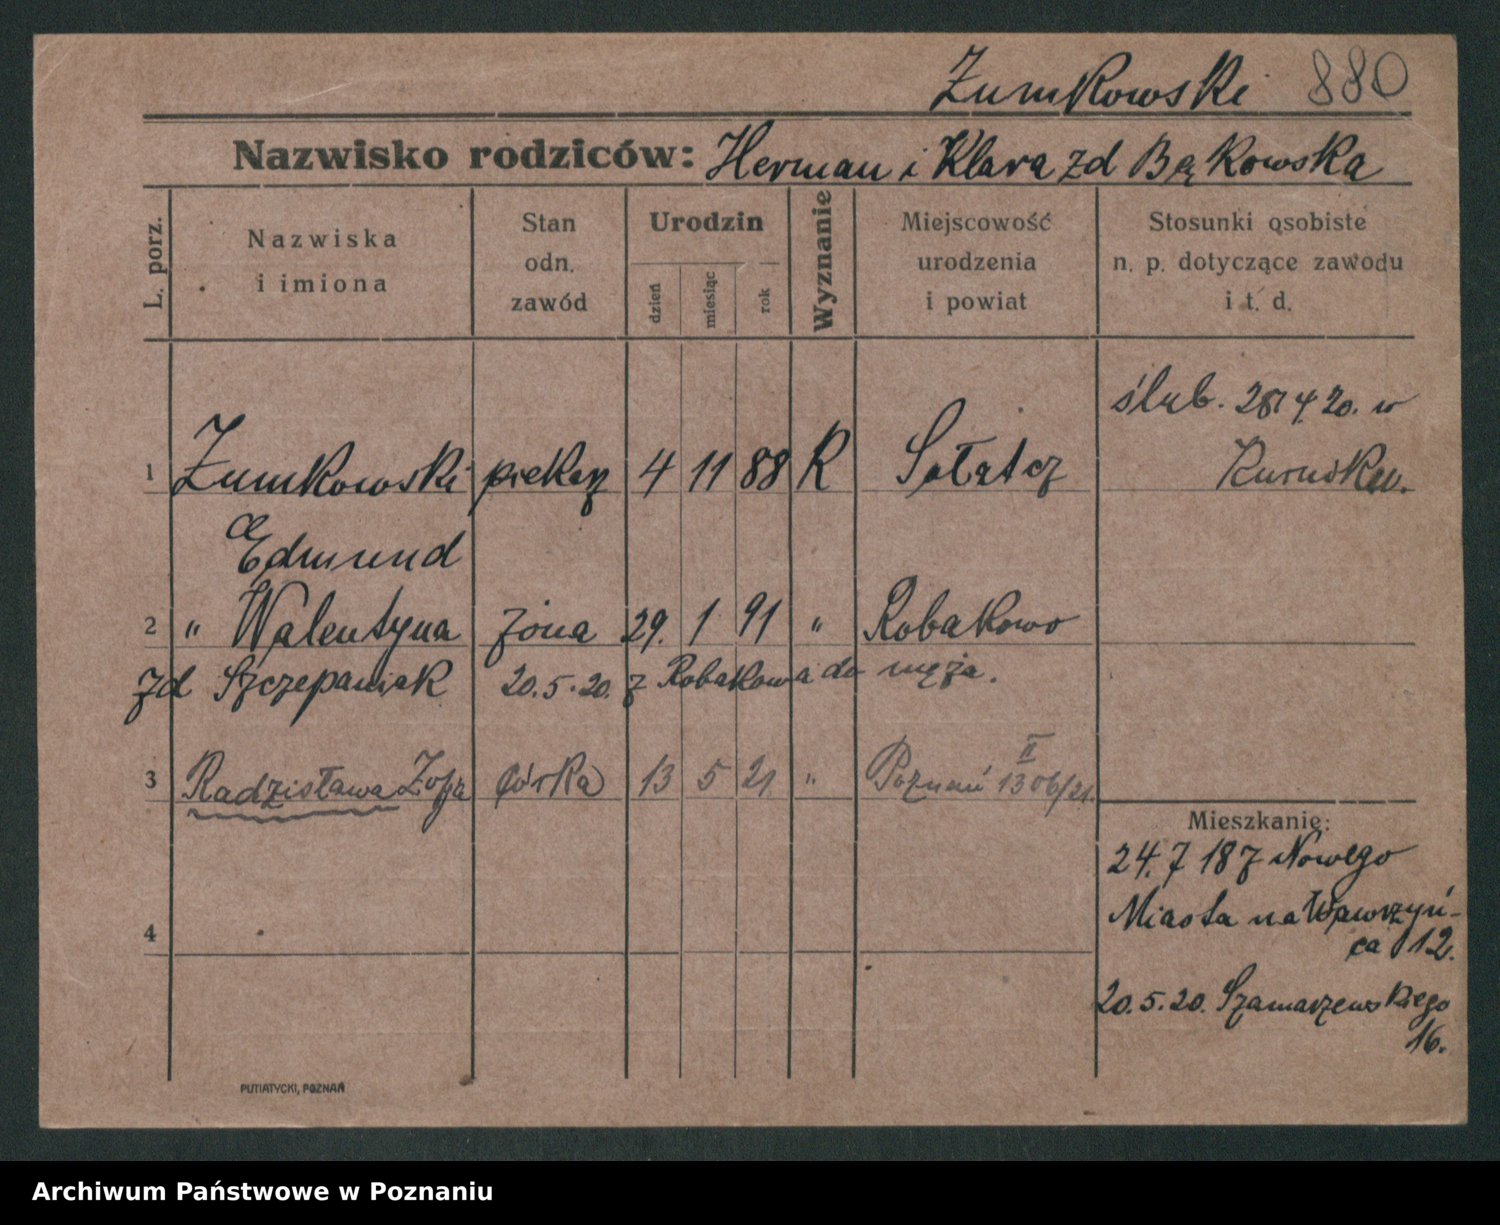 Żumkowski 880
Nazwisko rodziców: Herman i Klara zd Bąkowska
L. porz.
Nazwiska i imiona
Stan odn. zawód
Urodzin
dzień miesiąc rok
Wyznanie
Miejscowość urodzenia i powiat
Stosunki osobiste n. p. dotyczące zawodu i t. d.
ślub. 28/4 20. w
1 Żumkowski piekarz 4 11 88 R Sołacz
Edmund
2 " Walentyna żona 29. 1 91 " Robakowo
zd Szczepaniak 20.5.20. z Robakowa do męża.
3 Radzisława Zofja córka 13 5 21 " Poznań II 1306/21.
Mieszkanie:
24.7 18 z Nowego
Miasta na Wawrzyń-
ca 12.
20.5.20. Szamarzewskiego
16.
4
PUTIATYCKI, POZNAŃ
Archiwum Państwowe w Poznaniu